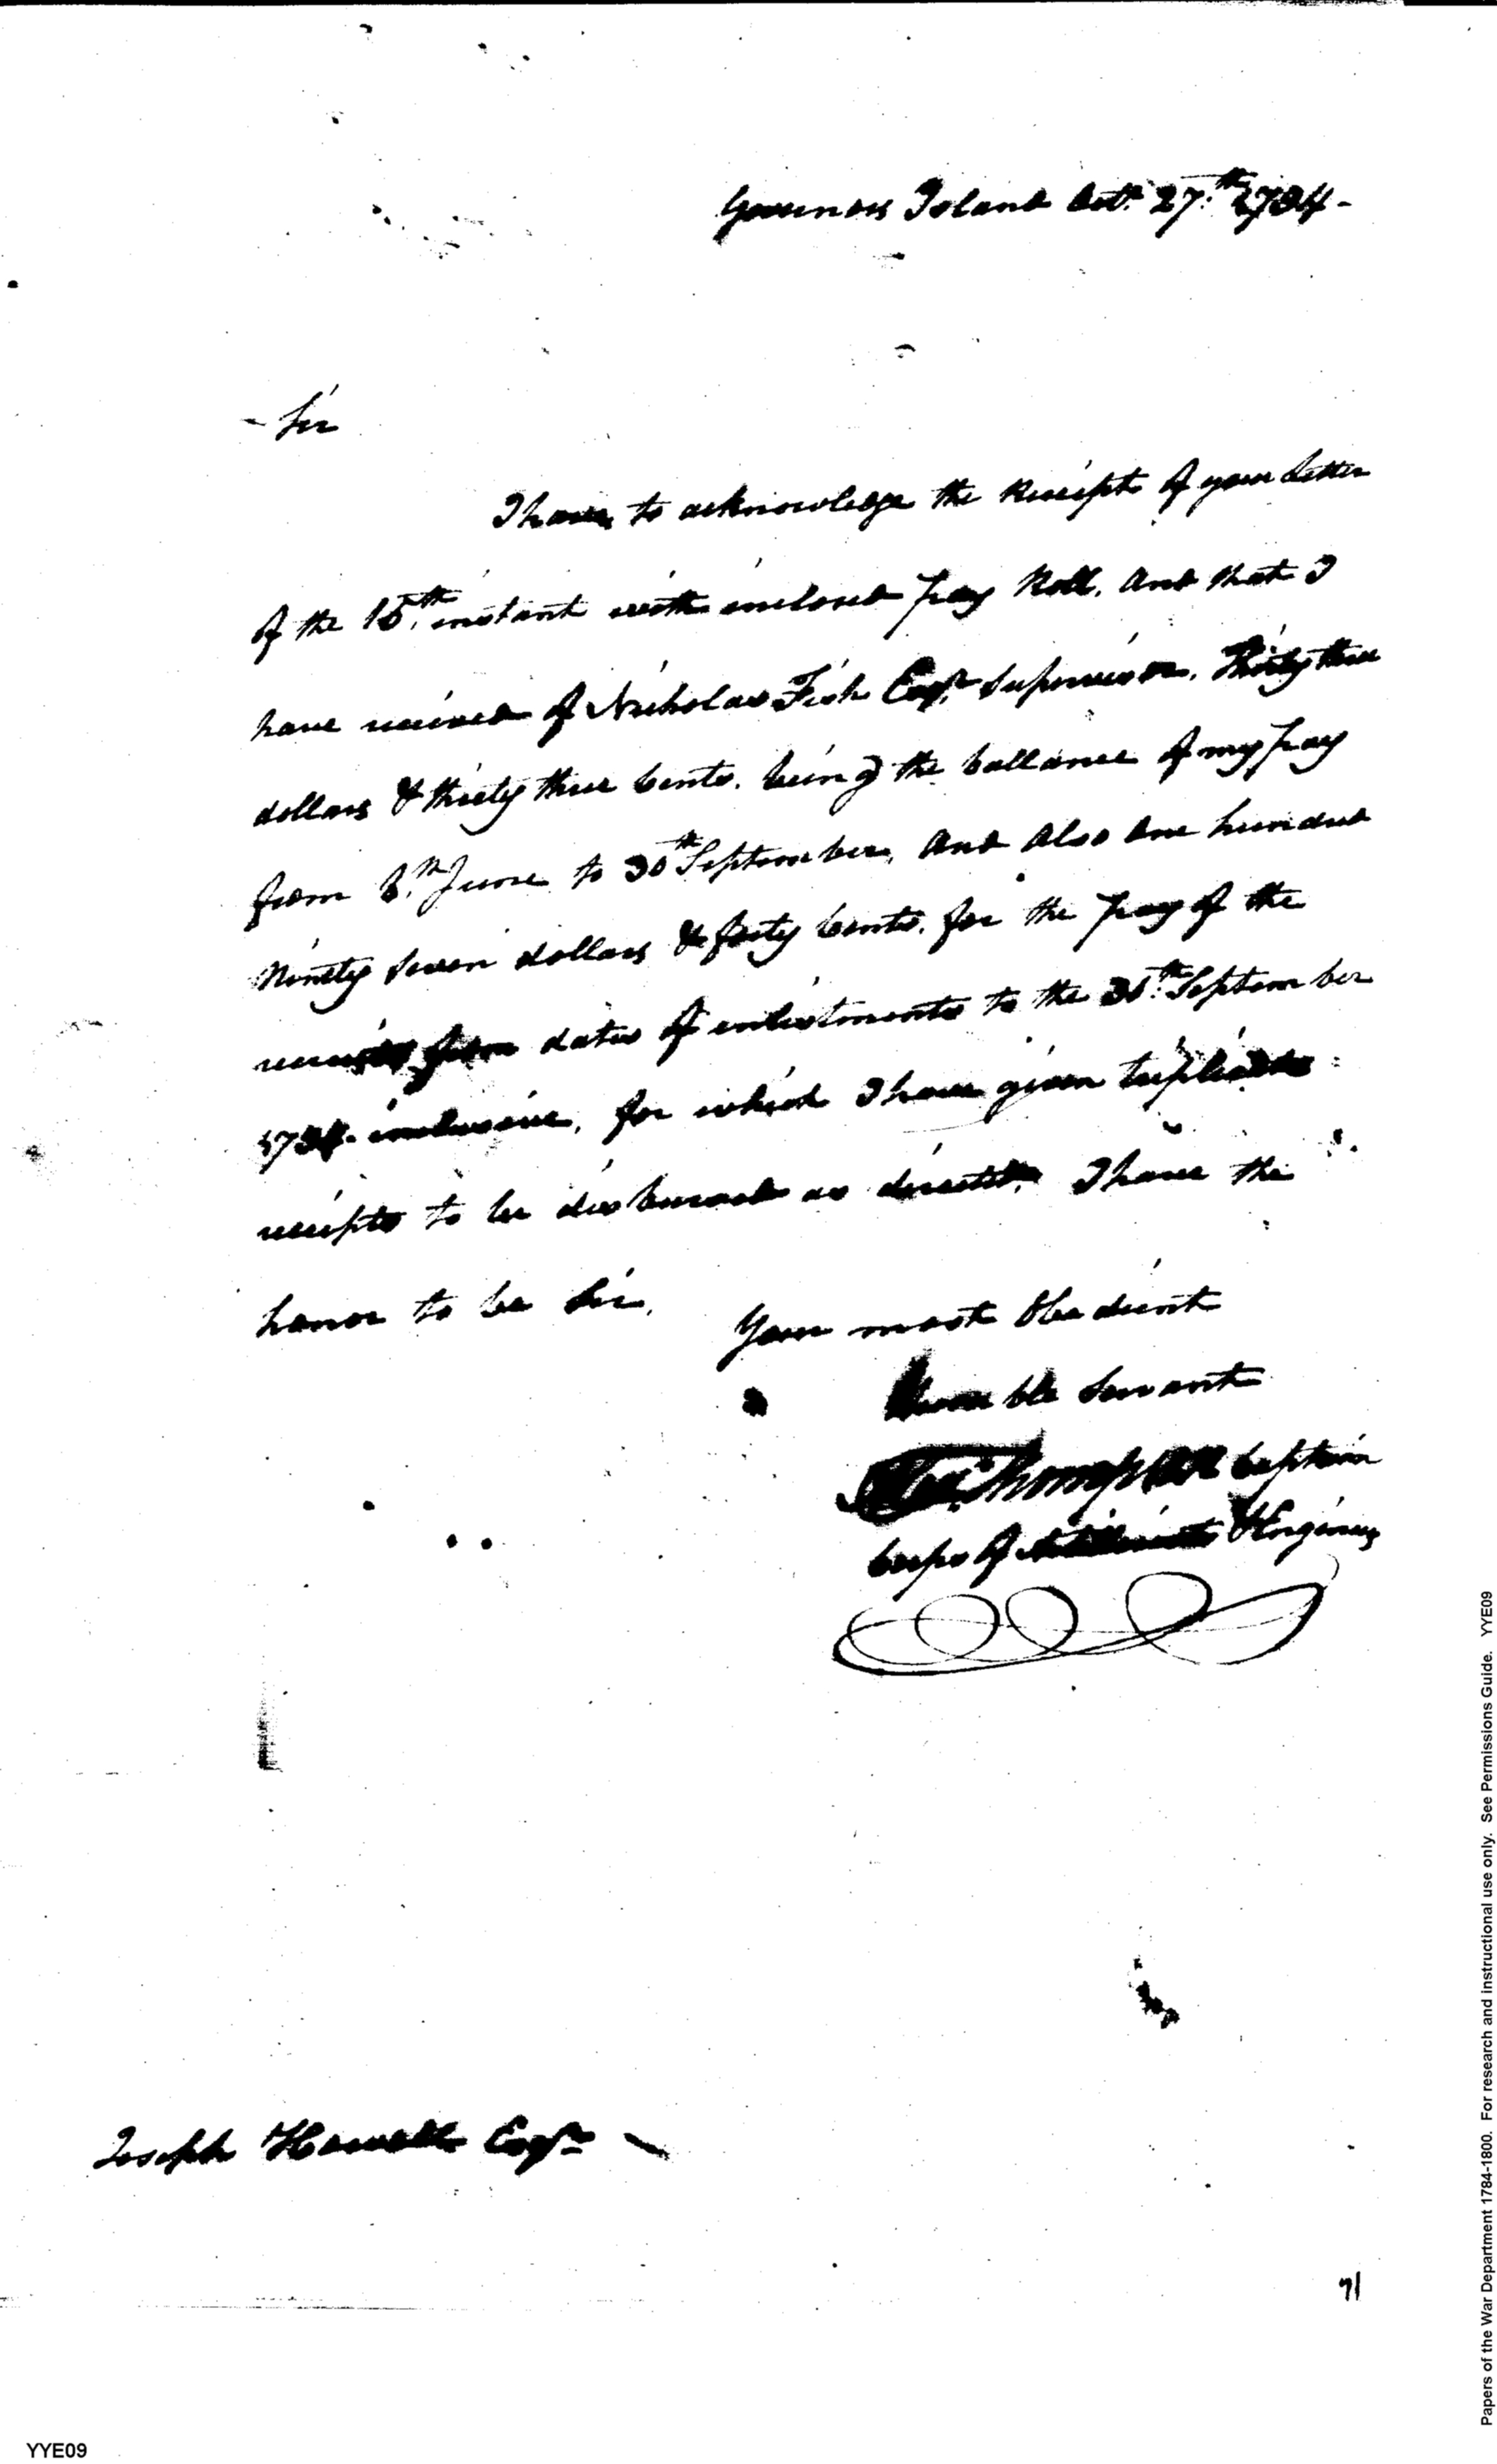 Governors Island Octr. 27th. 1794-
- Sir
I have to acknowledge the Receipt of your Letter
of the 15th. instant with inclosed pay Roll, and that I
have received of Nicholas Fish Esqr. Supervisor, Thirty three
dollars & thirty three Cents. being the ballance of my pay
from June to 30th September, and also One hundred
Ninety Seven dollars & forty Cents. for the pay of the
recruits from dates of enlistments to the 30th. September
1794. inclusive, for which I have given triplicate
receipts to be disbursed as directed. I have the
honor to be Sir,
Your most Obedient
Humble Servant
Alexr. Thompson Captain
Corps of Artillerists & Engineers
Joseph Howell Esqr
71
YYE09
Papers of the War Department 1784-1800. For research and instructional use only. See Permissions Guide. YYE09